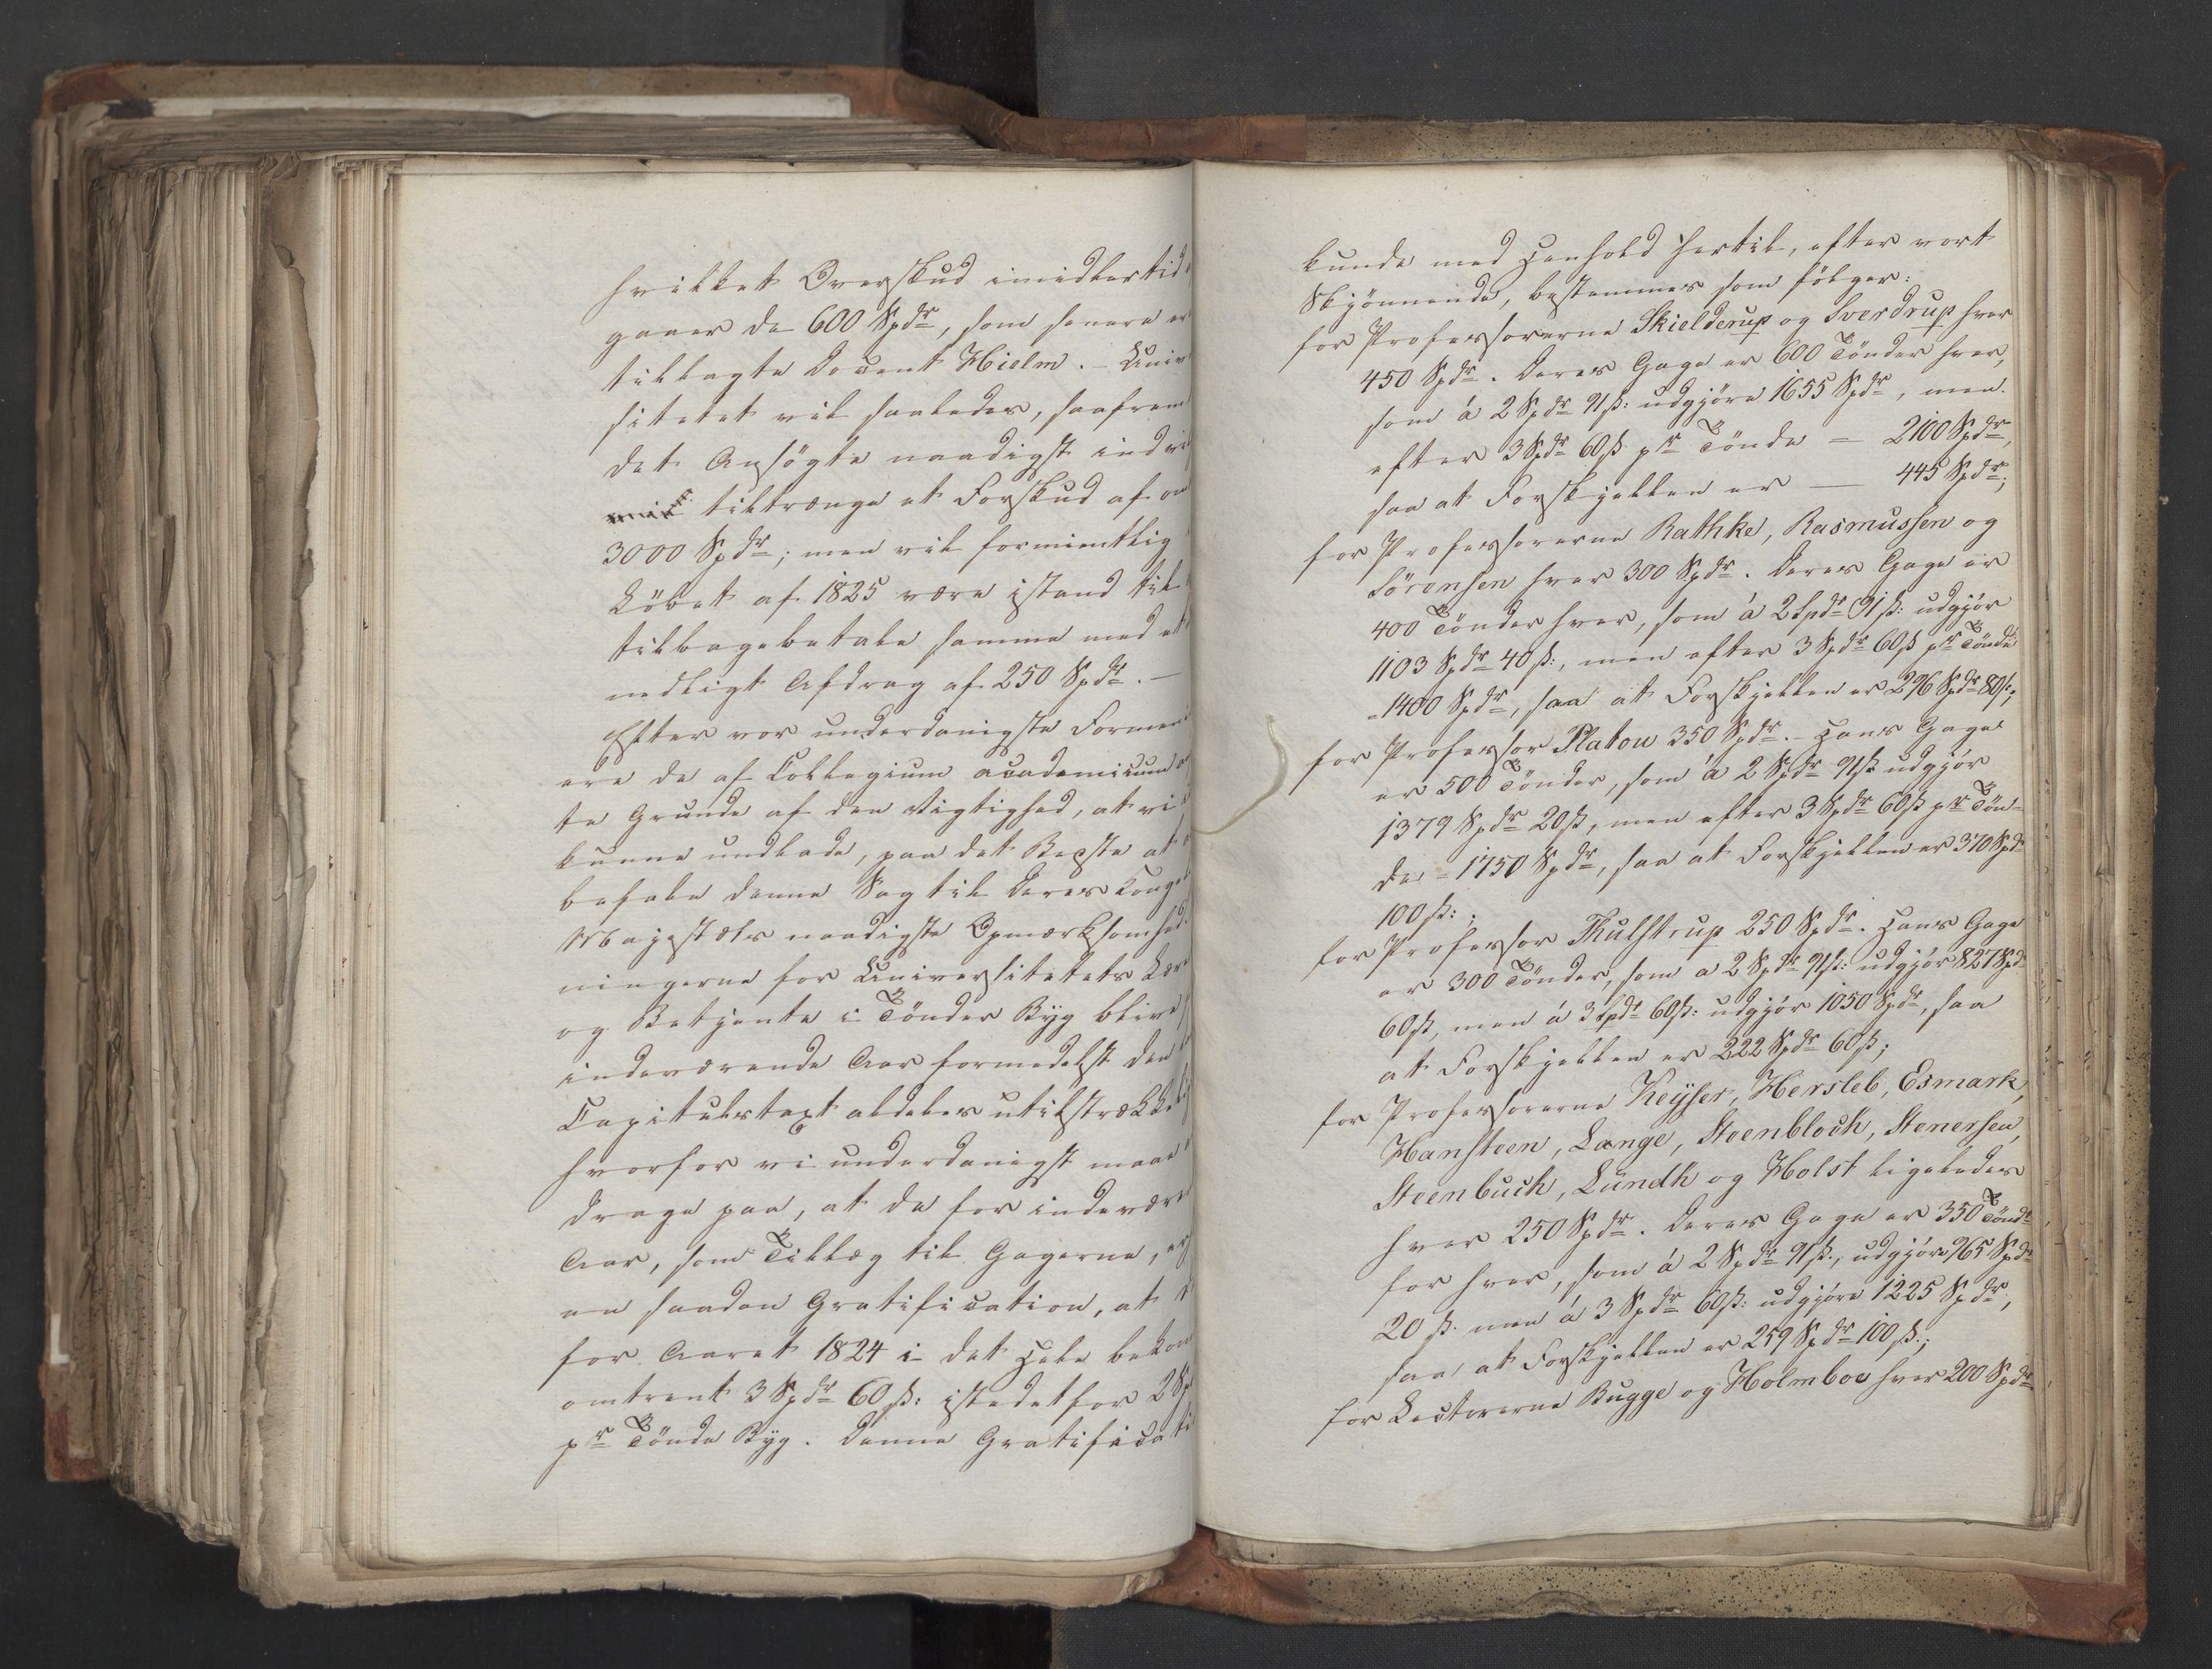 hvilket Overskud imidlertid
gaaer de 600 Spdr, som senere er
tillagte Docent Hielm. – Univ
sitetet vil saaledes, saafrem
det Ansögte naadigst indvi
tiltrænge et Forskud af om
3000 Spdr; men vil formientlig
Löbet af 1825 være istand til
tilbagebetale samme med et
nedligt Afdrag af 250 Spdr. –
Efter vor underdanigste Formeni
ere de af Collegium academicum an
te Grunde af den Vigtighed, at vi
kunne undlade, paa det Bedste at
befale denne Sag til Deres Konge
Majestæts naadigste Opmærksomhed.
ningerne for Universitetets Lære
og Betjente i Tönder Byg blive
indeværende Aar formedelst den
Capitulstaxt aldeles utilstrækkelig
hvorfor vi underdanigst maae
drage paa, at de for indevære
Aar, som Tillæg til Gagerne,
en saadan Gratification, at
for Aaret 1824 i det Hele bekom
omtrent 3 Spdr 60 ß: istedetfor 2 Sp
pr Tönde Byg. Denne Gratificati
kunde med Henhold hertil, efter vort
Skjönnende, bestemmes som fölger:
for Professorerne Skielderup og Sverdrup hver
450 Spdr. Deres Gage er 600 Tönder hver,
som á 2 Spdr 91 ß: udgjöre 1655 Spdr, men
efter 3 Spdr 60 ß pr Tönde = 2100 Spdr,
saa at Forskjellen er — 445 Spdr;
for Professorerne Rathke, Rasmussen og
Sörensen hver 300 Spdr. Deres Gage er
400 Tönder hver, som á 2 Spdr 91 ß: udgjör
1103 Spdr 40 ß:, men efter 3 Spdr 60 ß pr Tönde
= 1400 Spdr, saa at Forskjellen er 296 Spdr 80 ß;
for Professor Platou 350 Spdr. – Hans Gage
er 500 Tönder, som á 2 Spdr 91 ß udgjör
1379 Spdr 20 ß, men efter 3 Spdr 60 ß pr Tön-
de = 1750 Spdr, saa at Forskjellen er 370 Spd
100 ß:;
for Professor Thulstrup 250 Spdr. Hans Gage
er 300 Tönder, som a 2 Spdr 91 ß: udgjör 827 Spd
60 ß, men á 3 Spdr 60 ß: udgjör 1050 Spdr, saa
at Forskjellen er 222 Spdr 60 ß;
for Professorerne Keyser, Hersleb, Esmark,
Hansteen, Lange, Steenbloch, Stenersen,
Steenbuch, Lundh og Holst ligeledes
hver 250 Spdr. Deres Gage er 350 Tönd
for hver, som á 2 Spdr 91 ß:, udgjöre 965 Spd
20 ß. men á 3 Spdr 60 ß: udgjöre 1225 Spdr,
saa at Forskjellen er 259 Spdr 100 ß:;
for Lectorerne Bugge og Holmboe hver 200 Spdr